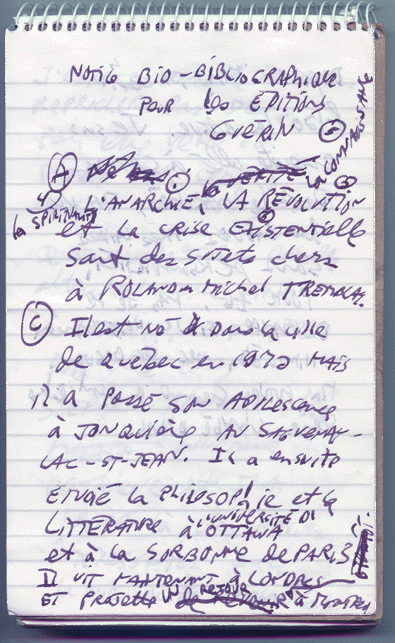 NOTICE BIO-BIBLIOGRAPHIQUE
POUR les EDITIONS
GUÉRIN
la CONNAISSANCE
A
la VERITÉ
la SPIRITUALITÉ
L'ANARCHIE, LA RÉVOLUTION
et la CRISE EXISTENTIELLE
sont des sujets chers
à ROLAND MICHEL TREMBLAY.
C Il est né dans la ville
de QUÉBEC en 1972 MAIS
il a passé son ADOLESCENCE
à JONQUIÈRE AU SAGUENAY-
LAC-ST-JEAN. IL a ensuite
ETUDIÉ la PHILOSOPHIE et la
LITTÉRATURE à L'UNIVERSITÉ D'OTTAWA
et à la SORBONNE de PARIS
IL VIT MAINTENANT à LONDRES
ET PROJETTE UN RETOUR à